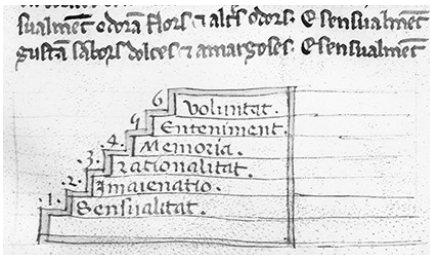 sualmēt odorā flors ⁊ altrs odors. E sensualmēt
gustā sabors dolces ⁊ amargoses. E sensualmēt
6 Voluntat.
5 Enteniment.
.4. Memoria.
.3. rationalitat.
.2. Imaienatio.
.1. Sensualitat.